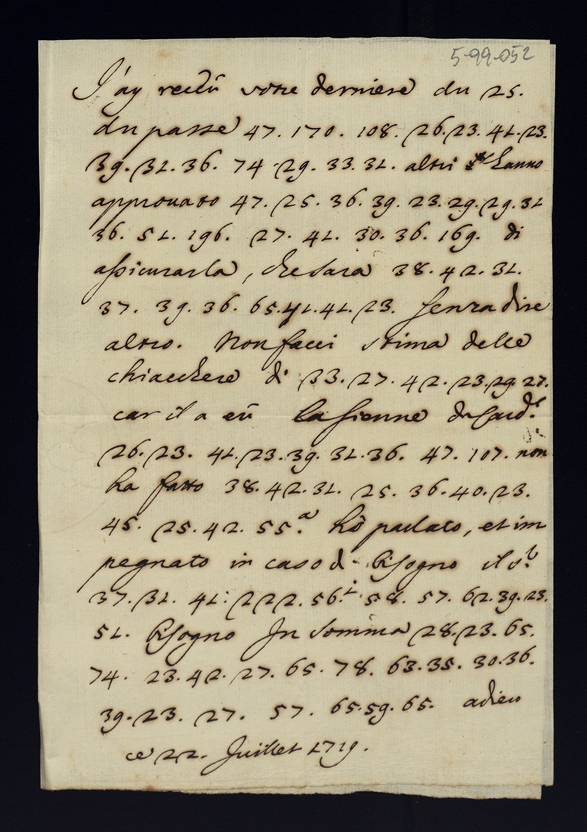 5-99-052
J'ay receu votre derniere du 25.
du passe 47. 170. 108. 26. 23. 41. 23.
39. 31. 36. 74. 29. 33. 31. altri hanno
approuato 47. 25. 36. 39. 23. 29. 29. 31
36. 51. 196. 27. 41. 30. 36. 169. di
assicurarla, che sara 38. 42. 31.
37. 39. 36. 65. 41. 41. 23. senza dire
altro. Non facci stima delle
chiacchere di 33. 27. 42. 23. 29. 27.
car il a eu la sienne du Card.
26. 23. 41. 23. 39. 31. 36. 47. 107. non
ha fatto 38. 42. 31. 25. 36. 40. 23.
45. 25. 42. 55.a hò parlato, et im
pegnato in caso di bisogno il s.r
37. 31. 41. 222. 56. 58. 57. 62. 39. 23.
51. bisogno In somma 28. 23. 65.
74. 23. 42. 27. 65. 78. 63. 35. 30. 36.
39. 23. 27. 57. 65. 59. 65. adieu
ce 22. Juillet 1719.